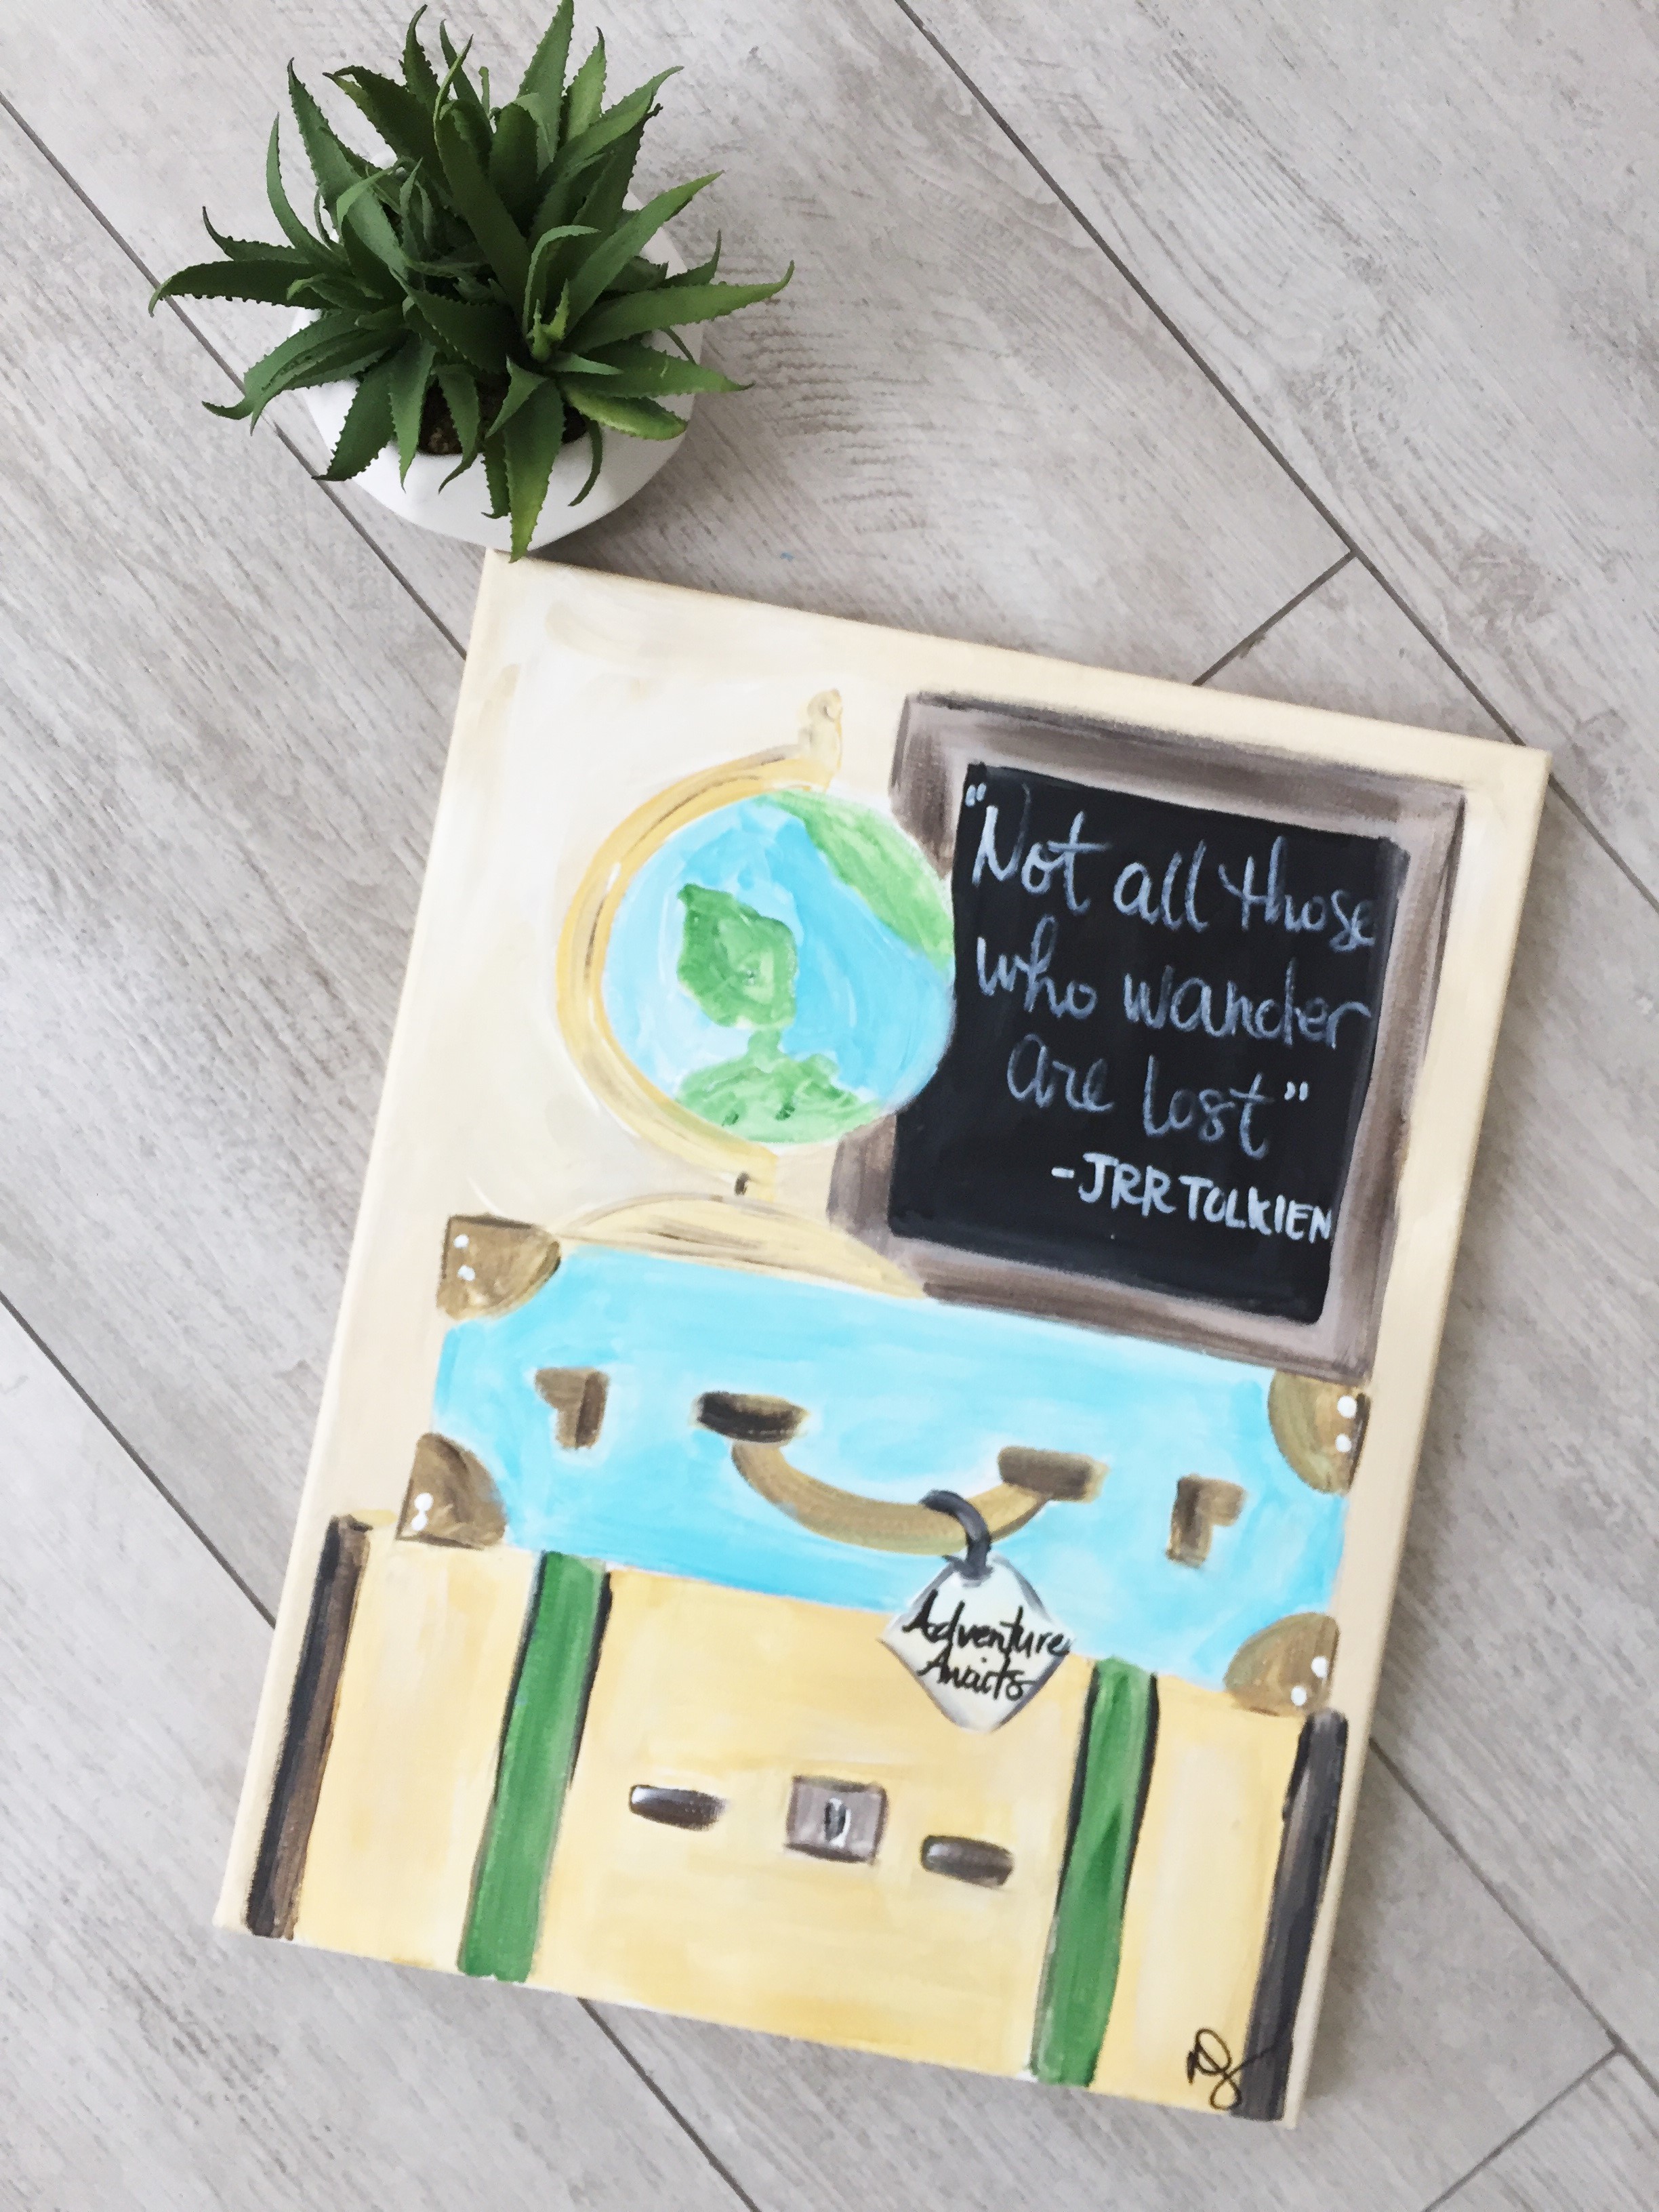 "Not all those
who wander
are lost"
-JRR TOLKIEN
Adventure
Awaits